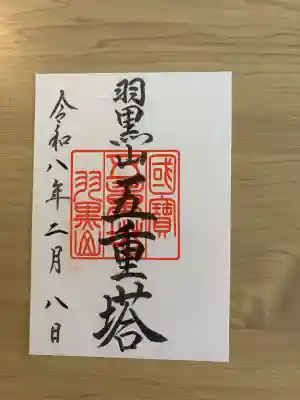 羽黒山五重塔
國寶
羽黒山
令和八年二月八日